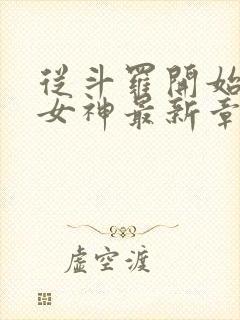 從斗羅開始
女神最新章
虛空渡